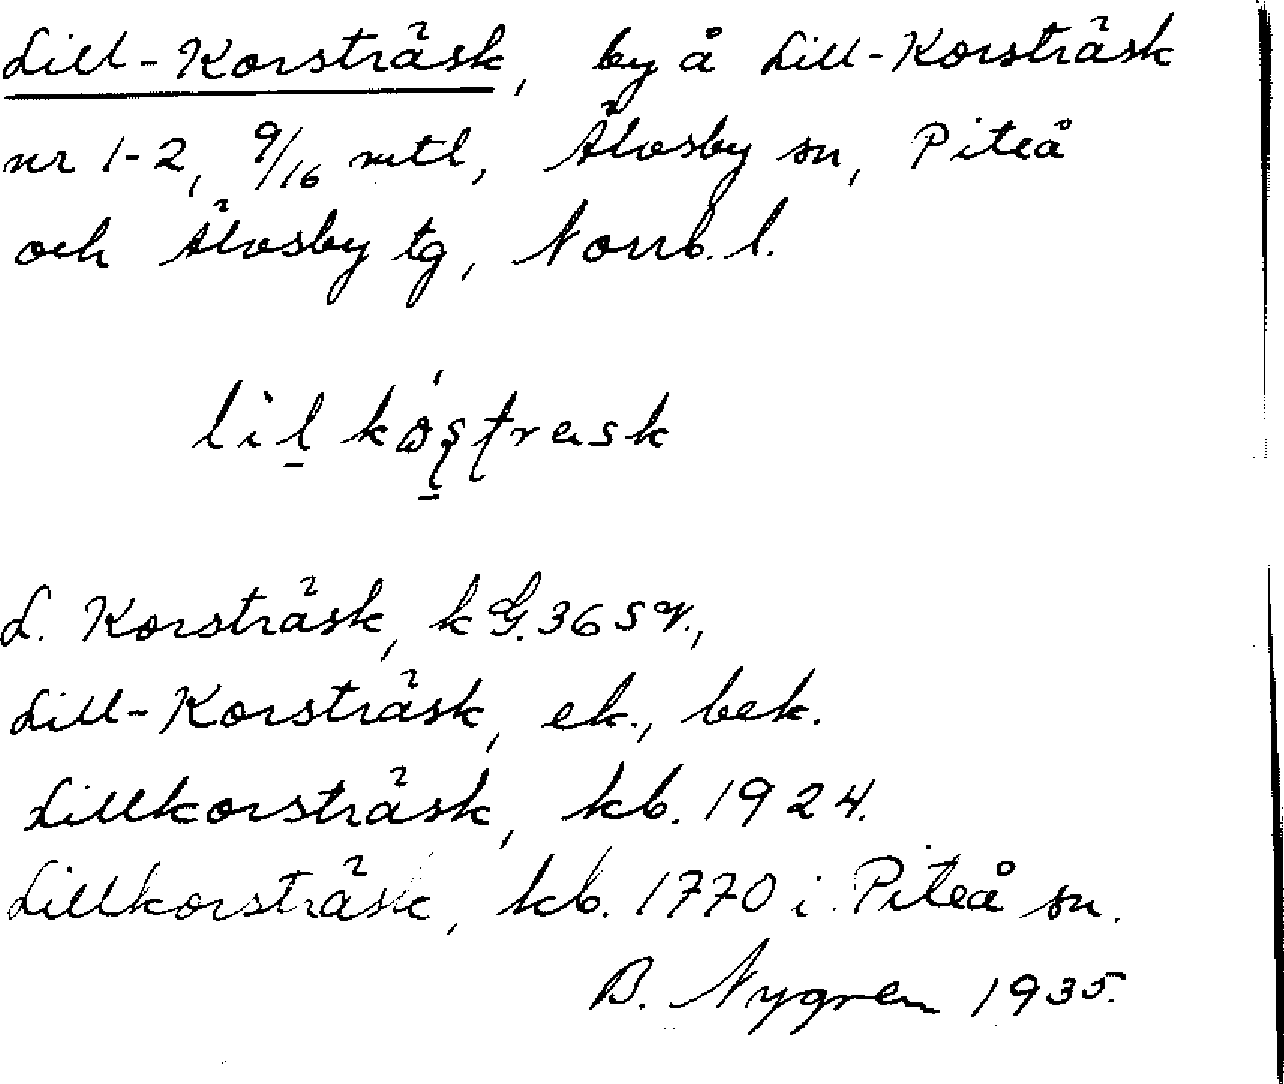 Lill-Korsträsk, by å Lill-Korsträsk
nr 1-2, 9/16 mtl, Älvsby sn, Piteå
och Älvsby tg, Norrb. l.
L. Korsträsk, k G. 365 V.,
Lill-Korsträsk, ek., bek.
Lillkorsträsk, kb. 1924.
Lillkorsträsk, kb. 1770 i Piteå sn.
B. Nygren 1935.